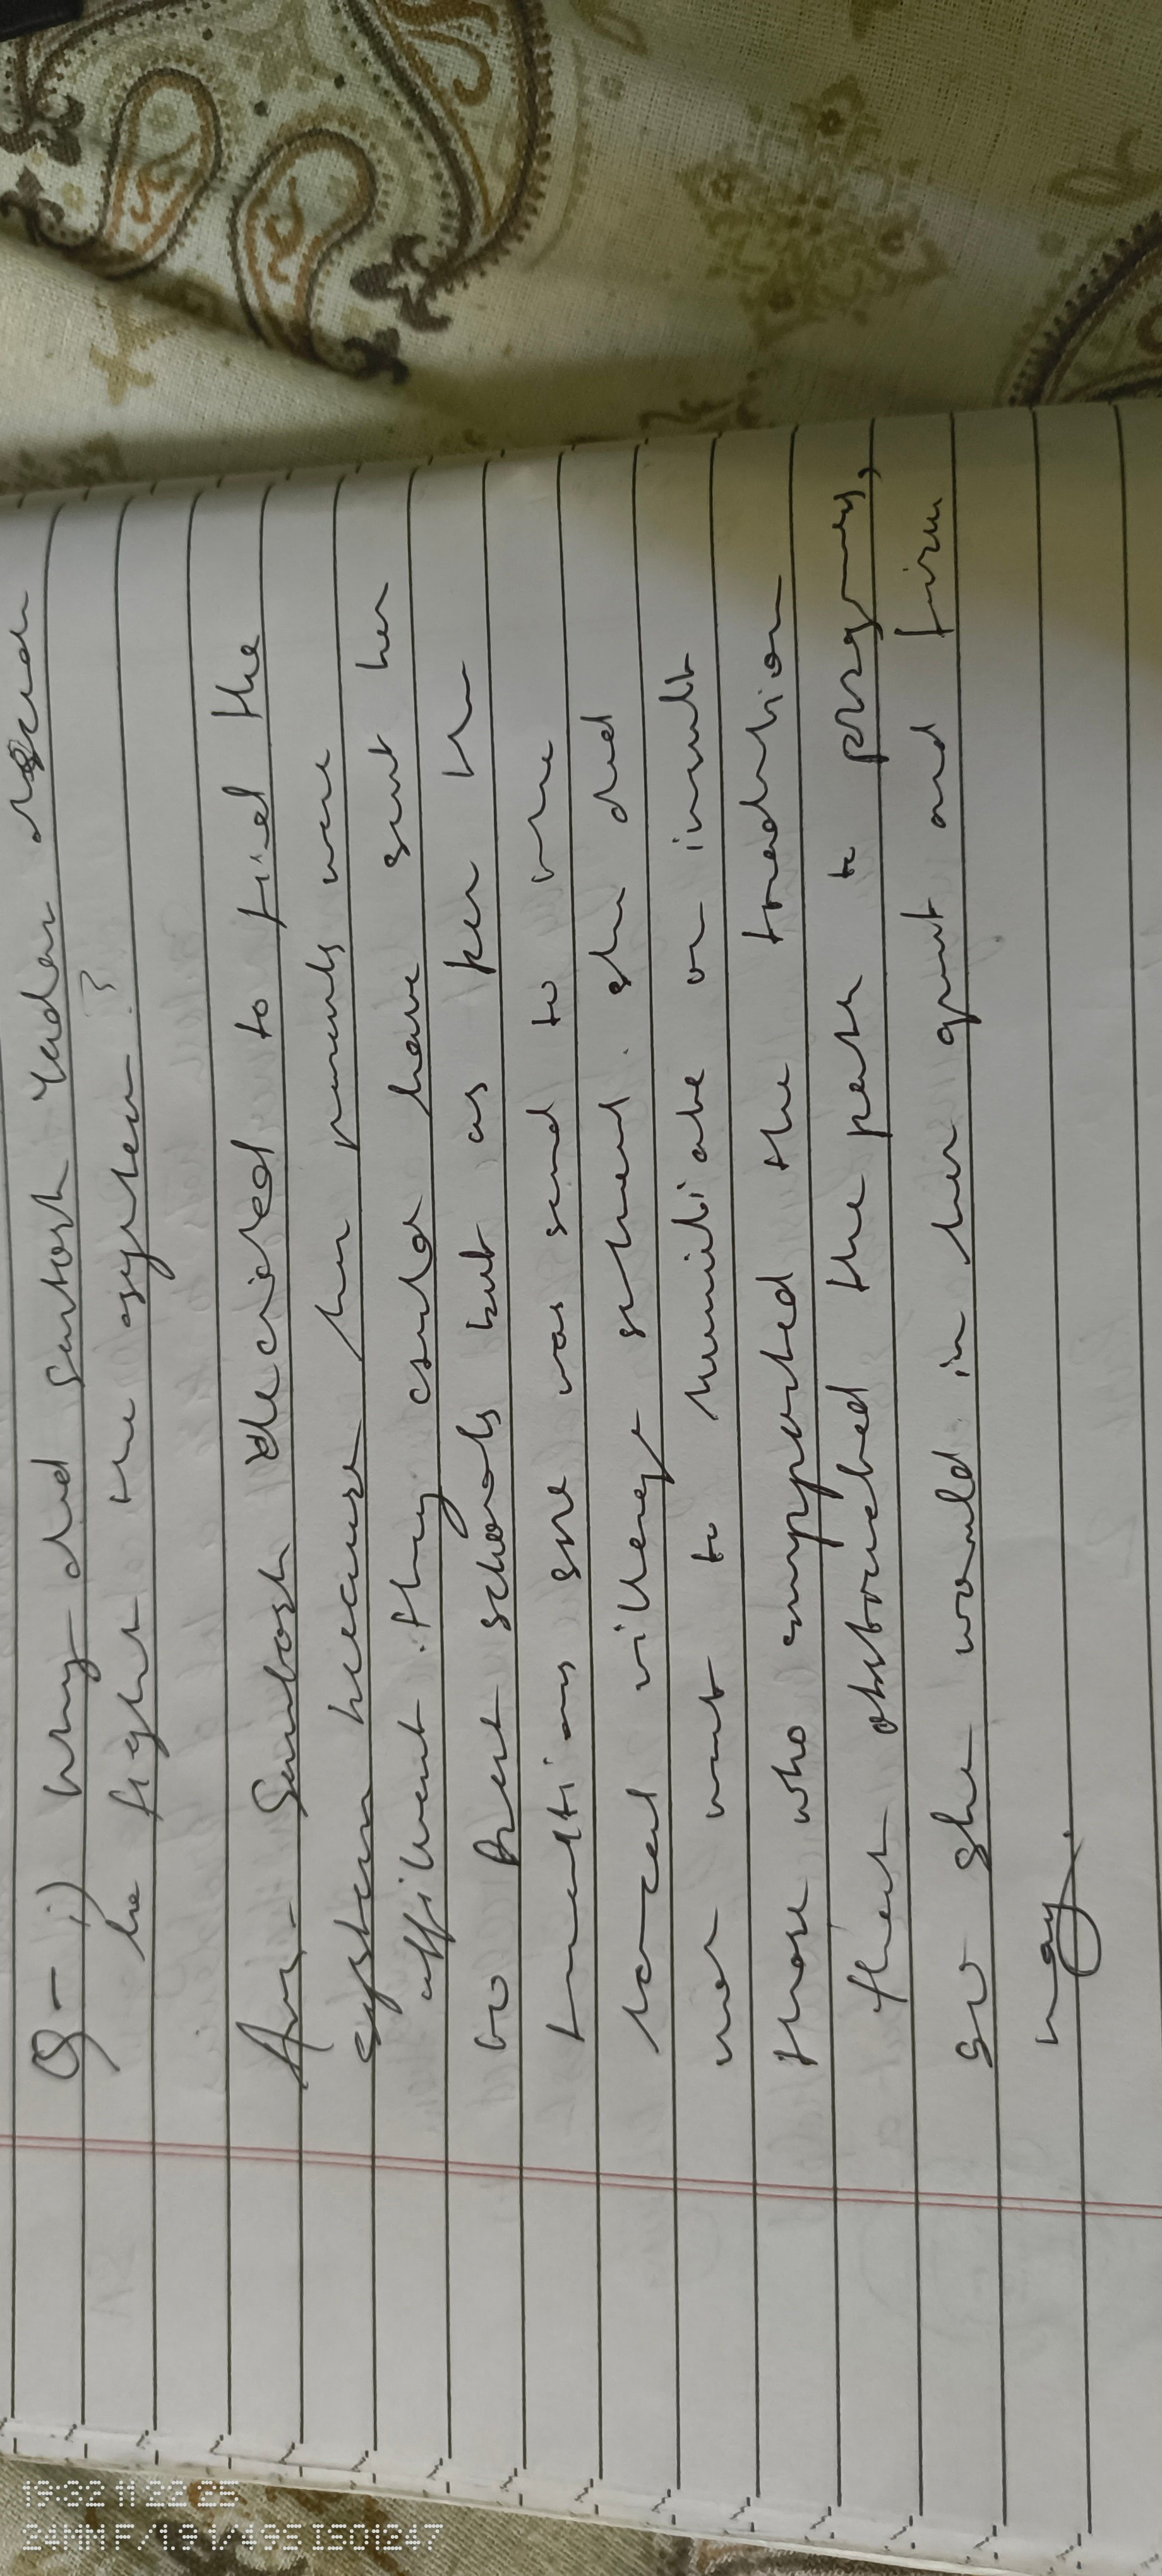 Q - i) Why did Santosh Yadav decide
he fight the system ?
Ans - Santosh decided to fied the
system because her parents were
affilwent . They could have sent her
to best schools but as per the
traditions she was send to the
local villeage school . she did
not want to humiliate or insult
those who supported the tradition
that obstructed the path to progress,
so she would in her quiet and firm
way.
19:32 11 22 25
24MM F/1.9 1/43S ISO1247